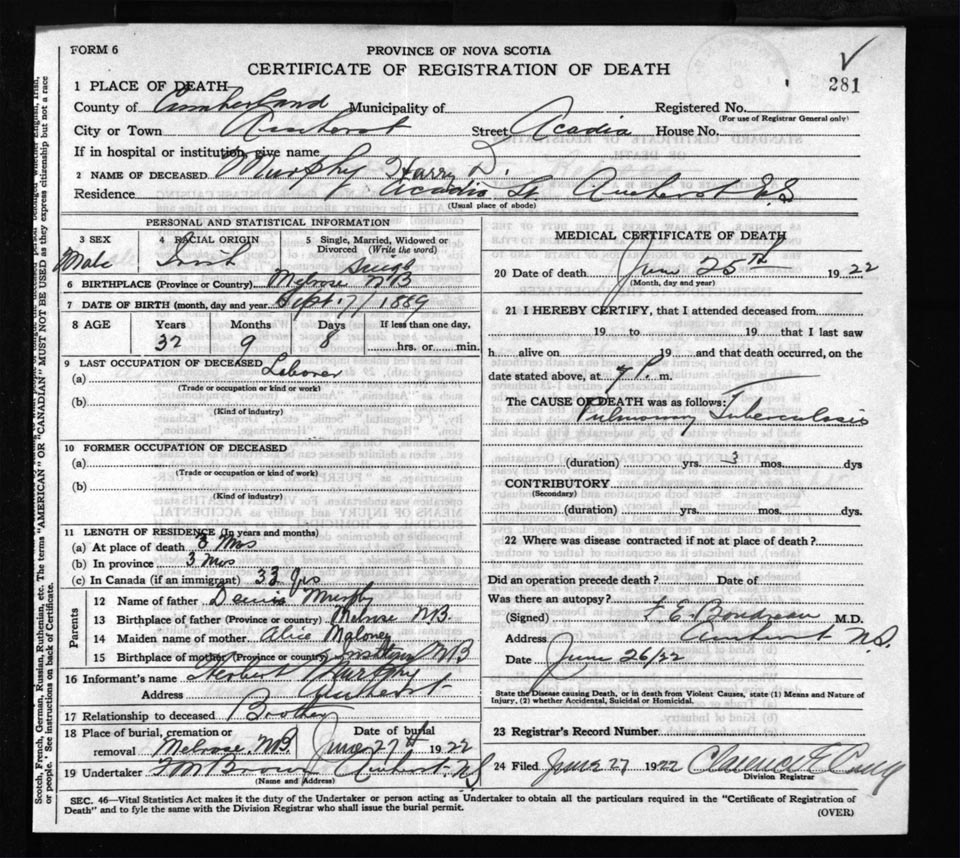 FORM 6
PROVINCE OF NOVA SCOTIA
CERTIFICATE OF REGISTRATION OF DEATH
281
1 PLACE OF DEATH
County of Cumberland Municipality of Registered No.
(For use of Registrar General only)
City or Town Amherst Street Acadia House No.
If in hospital or institution, give name
2 NAME OF DECEASED Murphy Harry D.
Residence Acadia St Amherst N.S
(Usual place of abode)
PERSONAL AND STATISTICAL INFORMATION
3 SEX Male
4 RACIAL ORIGIN Irish
5 Single, Married, Widowed or Divorced (Write the word) Single
6 BIRTHPLACE (Province or Country) Melrose NB
7 DATE OF BIRTH (month, day and year) Sept 17/1889
8 AGE Years Months Days If less than one day,
32 9 8 hrs. or min.
9 LAST OCCUPATION OF DECEASED
(a) Laborer
(Trade or occupation or kind or work)
(b)
(Kind of industry)
10 FORMER OCCUPATION OF DECEASED
(a)
(Trade or occupation or kind of work)
(b)
(Kind of industry)
11 LENGTH OF RESIDENCE (In years and months)
(a) At place of death 3 Mos
(b) In province 3 Mos
(c) In Canada (if an immigrant) 33 yrs
Parents
12 Name of father Dennis Murphy
13 Birthplace of father (Province or country) Melrose NB.
14 Maiden name of mother Alice Maloney
15 Birthplace of mother (Province or country) NB
16 Informant's name Herbert Murphy
Address Amherst
17 Relationship to deceased Brother
18 Place of burial, cremation or removal Melrose NB Date of burial June 27th 1922
19 Undertaker Brown Amherst NS
(Name and Address)
MEDICAL CERTIFICATE OF DEATH
20 Date of death June 25th 1922
(Month, day and year)
21 I HEREBY CERTIFY, that I attended deceased from
19 to 19 that I last saw
h alive on 19 and that death occurred, on the
date stated above, at 7 P. m.
The CAUSE OF DEATH was as follows:
Pulmonary Tuberculosis
(duration) yrs. 3 mos. dys
CONTRIBUTORY
(Secondary)
(duration) yrs. mos. dys.
22 Where was disease contracted if not at place of death?
Did an operation precede death? Date of
Was there an autopsy?
(Signed) F. E. M.D.
Address Amherst N.S.
Date June 26/22
State the Disease causing Death, or in death from Violent Causes, state (1) Means and Nature of
Injury, (2) whether Accidental, Suicidal or Homicidal.
23 Registrar's Record Number
24 Filed June 27 1922 Clarence E
Division Registrar
SEC. 46—Vital Statistics Act makes it the duty of the Undertaker or person acting as Undertaker to obtain all the particulars required in the "Certificate of Registration of
Death" and to fyle the same with the Division Registrar who shall issue the burial permit.
(OVER)
Scotch, French, German, Russian, Ruthenian, etc. The terms "AMERICAN" OR "CANADIAN" MUST NOT BE USED as they express citizenship but not a race
or people. See instructions on back of Certificate.